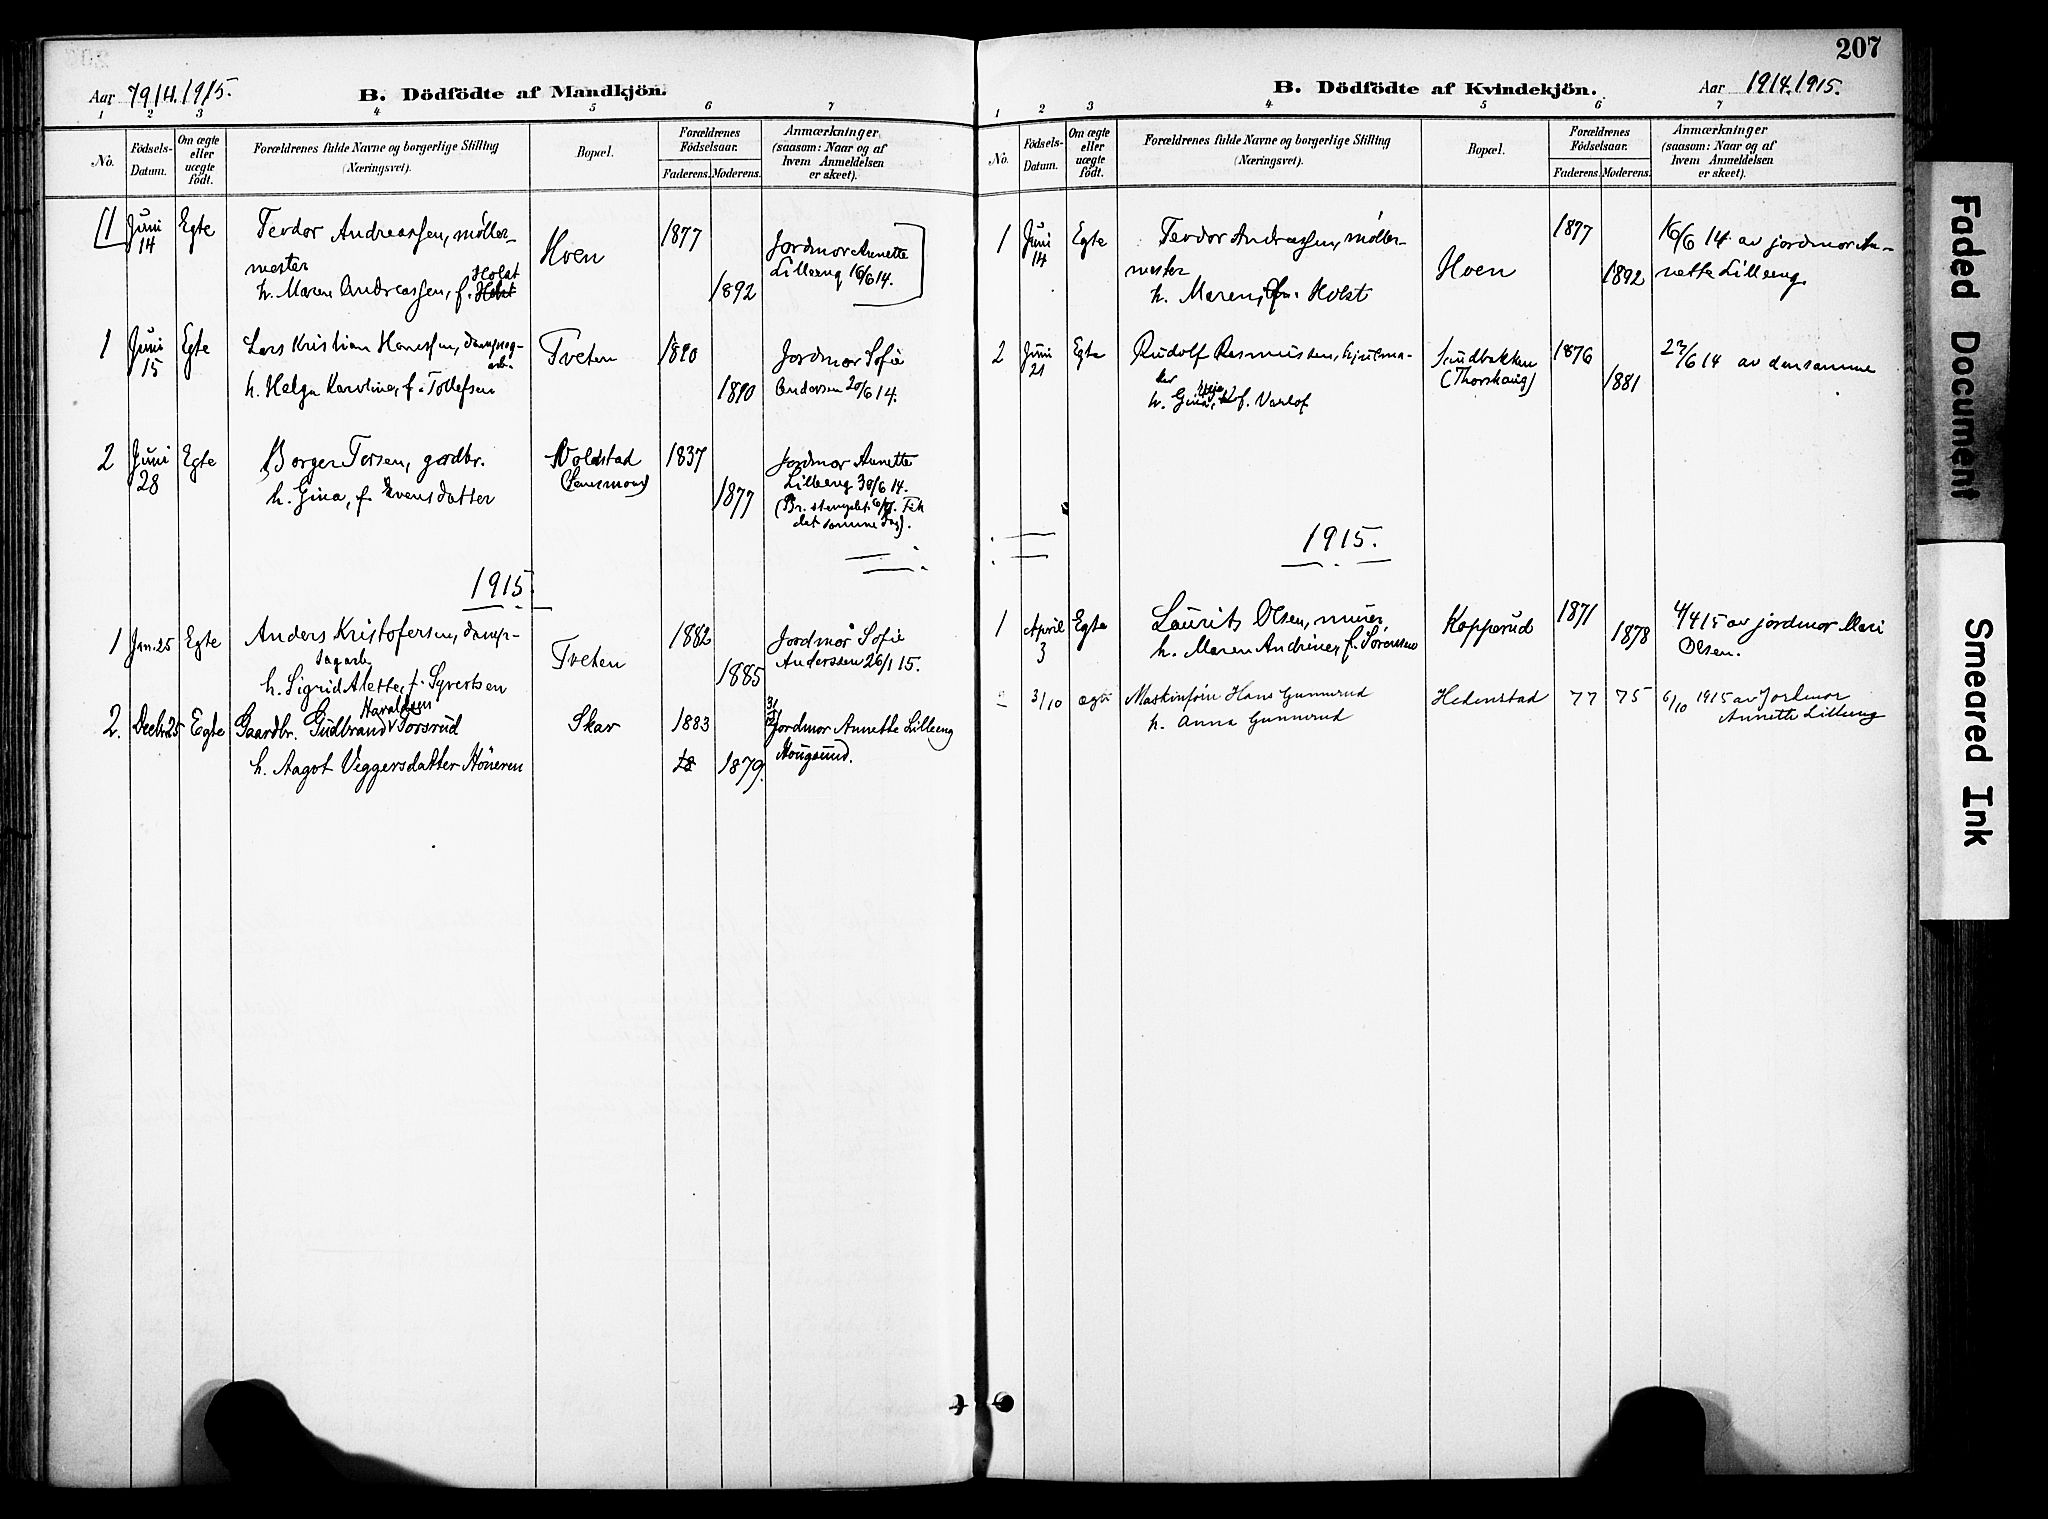 207
Aar 1914. 1915.
B. Dödfödte af Mandkjön.
1 2 3 4 5 6 7
No.
Födsels-Datum.
Om ægte eller uægte födt.
Forældrenes fulde Navne og borgerlige Stilling
(Næringsvei).
Bopæl.
Forældrenes Födselsaar.
Faderens. Moderens.
Anmærkninger
(saasom: Naar og af
hvem Anmeldelsen
er skeet).
[1 Juni 14 Egte Tevdor Andreassen, møller-
mester
h. Maren Andreassen, f. Holst
Hoen 1877 1892
Jordmor Annette
Lilleeng 16/6 14.]
1 Juni 15 Egte Lars Kristian Hansen, dampsag-
arb.
h. Helga Karoline, f. Tollefsen
Tveten 1890 1890
Jordmor Sofie
Anderssen 20/6 14.
2 Juni 28 Egte Borger Torsen, gardbr.
h. Gina, f. Evensdatter
Voldstad
1837 1877
Jordmor Annette
Lilleeng 30/6 14.
(Br. stemplet 6/7. Fik
det samme dag).
1915.
1 Jan. 25 Egte Anders Kristofersen, damp-
sagarb.
h. Sigrid Alette, f. Syvertsen
Tveten 1882 1885
Jordmor Sofie
Anderssen 26/1 15.
2. Decbr. 25 Egte Gaardbr. Gudbrand Haraldsen Torsrud
h. Aagot Viggersdatter Höneren
Skar 1883 18 1879.
31/12 Jordmor Annette Lilleeng
Hougsund.
B. Dödfödte af Kvindekjön.
Aar 1914. 1915.
1 2 3 4 5 6 7
No.
Födsels-Datum.
Om ægte eller uægte födt.
Forældrenes fulde Navne og borgerlige Stilling
(Næringsvei).
Bopæl.
Forældrenes Födselsaar.
Faderens. Moderens.
Anmærkninger
(saasom: Naar og af
hvem Anmeldelsen
er skeet).
1 Juni 14 Egte Tevdor Andreassen, møller-
mester
h. Maren, f. Holst
Hoen 1877 1892
16/6 14 av jordmor An-
nette Lilleeng
2 Juni 21 Egte Rudolf Rasmussen, hjulma-
ker
h. Gina, f. Varlof
Sandbakken
(Thorshaug)
1876 1881
23/6 14 av den samme
1915.
1 April 3 Egte Laurits Olsen, murer,
h. Maren Andrine, f. Sørensen
Kopperud 1871 1878
4/4 15 av jordmor Mari
Olsen.
2 3/10 ægte Maskinförer Hans Gunnerud
h. Anna Gunnerud
Hedenstad 77 75
6/10 1915 av Jordmor
Annette Lilleeng
Faded Document
Smeared Ink